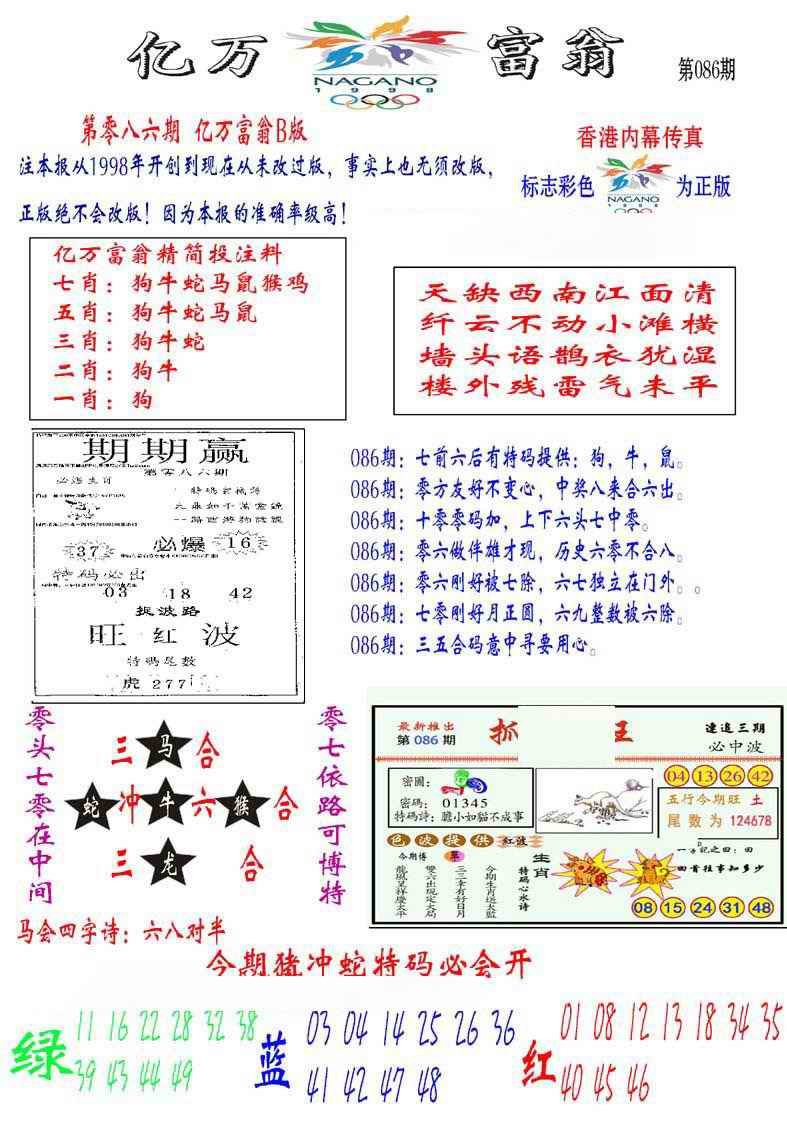 亿万富翁
NAGANO
1998
第086期
第零八六期 亿万富翁B版
香港内幕传真
注本报从1998年开创到现在从未改过版，事实上也无须改版，
标志彩色 NAGANO 1998 为正版
正版绝不会改版！因为本报的准确率级高！
亿万富翁精简投注料
七肖：狗牛蛇马鼠猴鸡
五肖：狗牛蛇马鼠
三肖：狗牛蛇
二肖：狗牛
一肖：狗
天缺西南江面清
纤云不动小滩横
墙头语鹊衣犹湿
楼外残雷气未平
期期赢
第零八六期
必选生肖
37 必爆 16
特码必出
03 18 42
捉波路
旺红波
特码尾数
虎 277
086期：七前六后有特码提供：狗，牛，鼠。
086期：零方友好不变心，中奖八来合六出。
086期：十零零码加，上下六头七中零。
086期：零六做伴雄才现，历史六零不合八。
086期：零六刚好被七除，六七独立在门外。
086期：七零刚好月正圆，六九整数被六除。
086期：三五合码意中寻要用心。
零头七零在中间
三 马 合
蛇 冲 牛 六 猴 合
三 龙 合
零七依路可博特
最新推出
第086期
抓 王
速追三期
必中波
密圖：
密碼：01345
特碼詩：膽小如貓不成事
04 13 26 42
五行今期旺 土
尾数为 124678
色波提供 紅波
今期博
龍鳳呈祥慶太平
雙六出現定大局
三三幸有好日月
今期生肖送大監
特碼心水诗
生肖
回首往事知多少
08 15 24 31 48
马会四字诗：六八对半
今期猪冲蛇特码必会开
绿
11 16 22 28 32 38
39 43 44 49
蓝
03 04 14 25 26 36
41 42 47 48
红
01 08 12 13 18 34 35
40 45 46